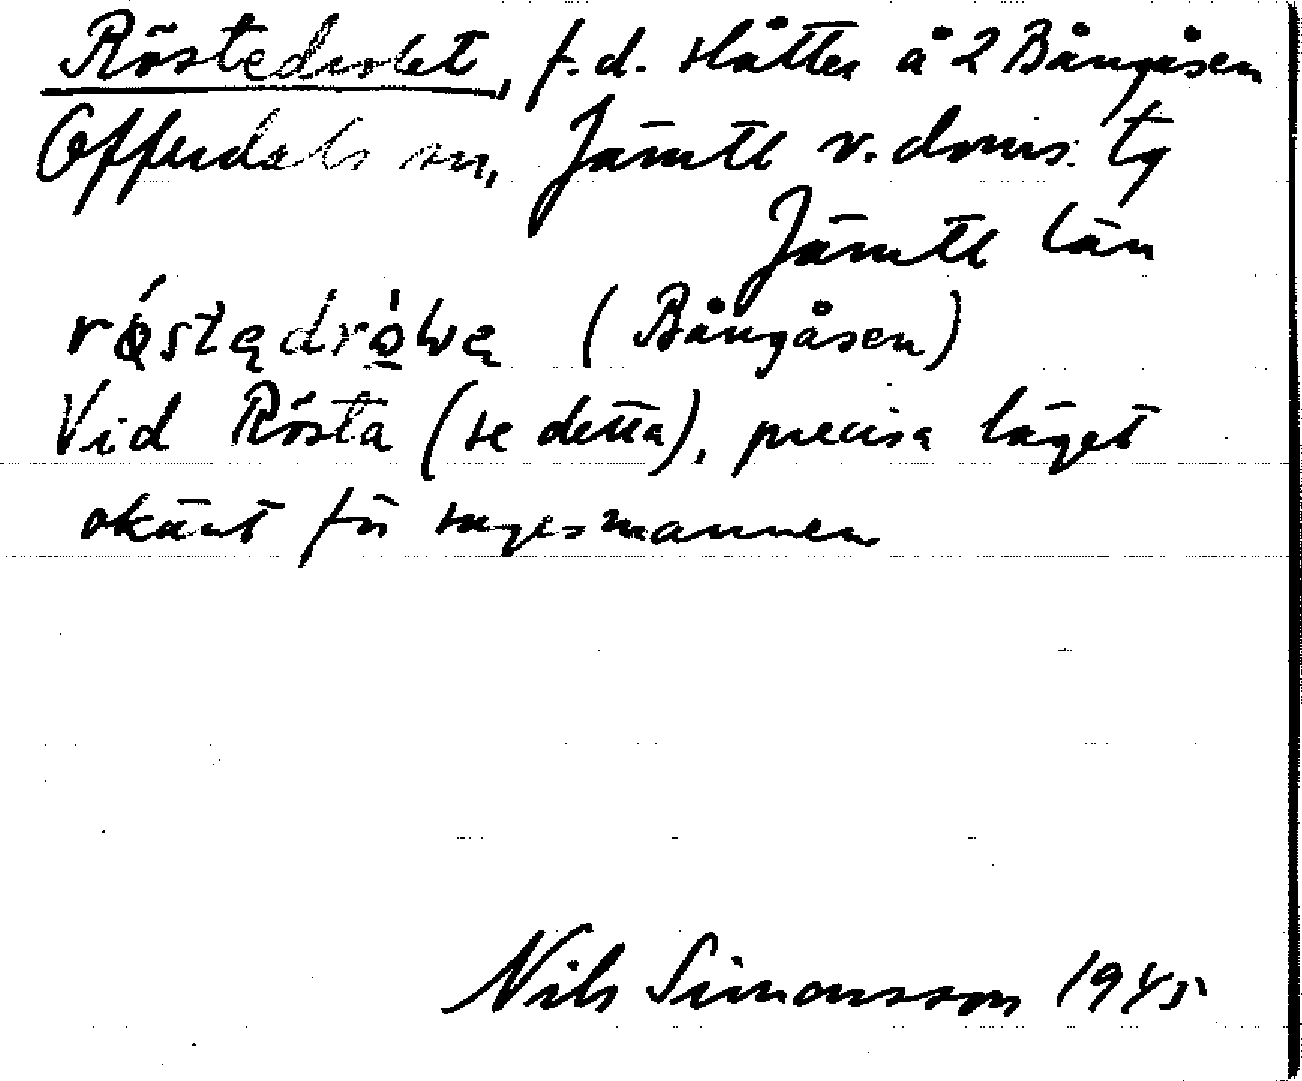 Röstedrolet, f.d. slåtter å 2 Bångåsen
Offerdals sn, Jämtl v. doms. tg
Jämtl län
(Bångåsen)
Vid Rösta (se detta), precisa läget
okänt för sagesmannen
Nils Simonsson 1945